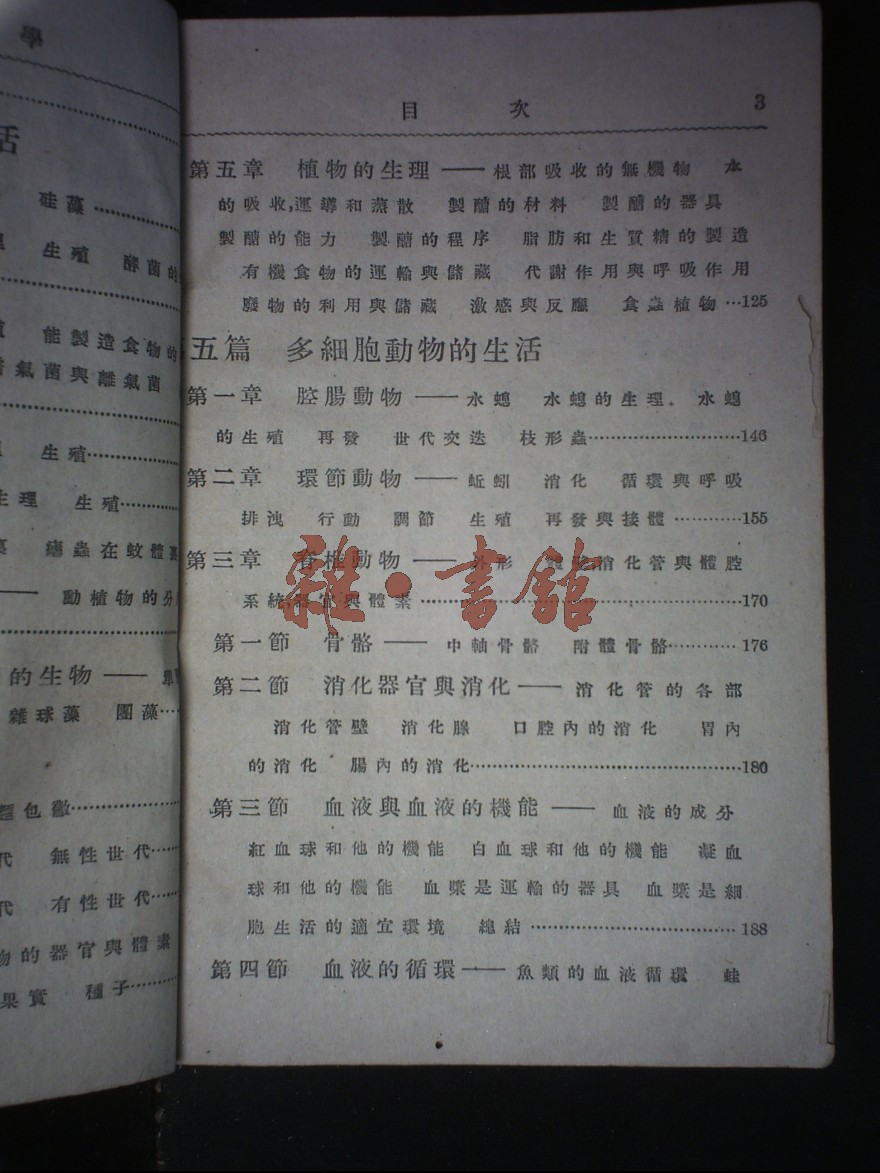 學
活
硅藻
生殖 酵菌的
能製造食物的
氣菌與離氣菌
生殖
生理 生殖
瘧蟲在蚊體
動植物的分
的生物——單
雜球藻 團藻
麵包黴
代 無性世代
代 有性世代
物的器官與體素
果實 種子
目次 3
第五章 植物的生理——根部吸收的無機物 水
的吸收,運導和蒸散 製醣的材料 製醣的器具
製醣的能力 製醣的程序 脂肪和生質精的製造
有機食物的運輸與儲藏 代謝作用與呼吸作用
廢物的利用與儲藏 激感與反應 食蟲植物…125
五篇 多細胞動物的生活
第一章 腔腸動物——水螅 水螅的生理 水螅
的生殖 再發 世代交迭 枝形蟲……146
第二章 環節動物——蚯蚓 消化 循環與呼吸
排洩 行動 調節 生殖 再發與接體……155
第三章 脊椎動物——外形 體壁消化管與體腔
系統,器官與體素……170
第一節 骨骼——中軸骨骼 附體骨骼……176
第二節 消化器官與消化——消化管的各部
消化管壁 消化腺 口腔內的消化 胃內
的消化 腸內的消化……180
第三節 血液與血液的機能——血液的成分
紅血球和他的機能 白血球和他的機能 凝血
球和他的機能 血漿是運輸的器具 血漿是細
胞生活的適宜環境 總結……188
第四節 血液的循環——魚類的血液循環 蛙
雜·書館